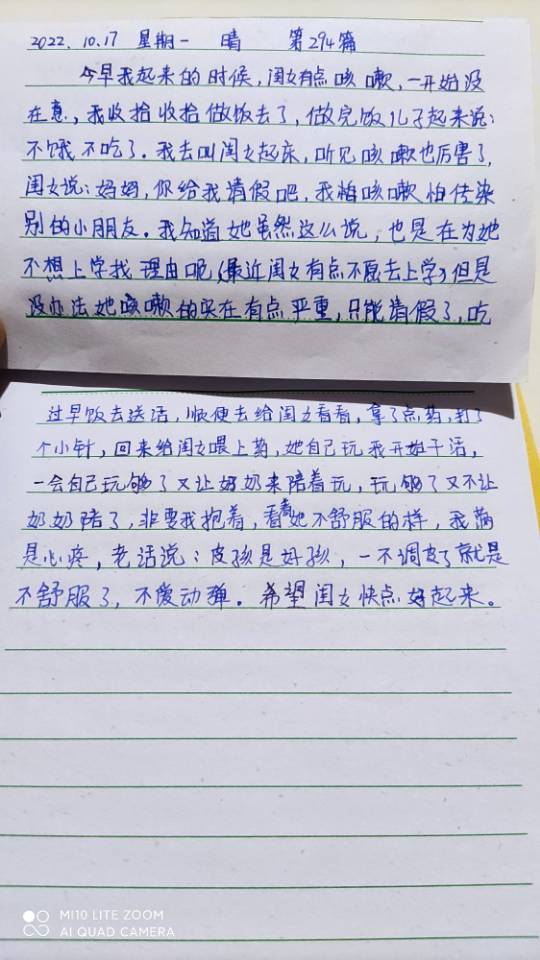 2022.10.17 星期一 晴 第294篇
今早我起来的时候,闺女有点咳嗽,一开始没
在意,我收拾收拾做饭去了,做完饭儿子起来说:
不饿不吃了。我去叫闺女起床,听见咳嗽也厉害了,
闺女说:妈妈,你给我请假吧,我怕咳嗽怕传染
别的小朋友。我知道她虽然这么说,也是在为她
不想上学找理由呢(最近闺女有点不愿去上学)但是
没办法她咳嗽的实在有点严重,只能请假了,吃
过早饭去送活,顺便去给闺女看看,拿了点药,打了
个小针,回来给闺女喂上药,她自己玩我开始干活,
一会自己玩够了又让奶奶来陪着玩,玩够了又不让
奶奶陪了,非要我抱着,看着她不舒服的样,我满
是心疼,老话说:皮孩是好孩,一不调皮了就是
不舒服了,不爱动弹。希望闺女快点好起来。
MI10 LITE ZOOM
AI QUAD CAMERA